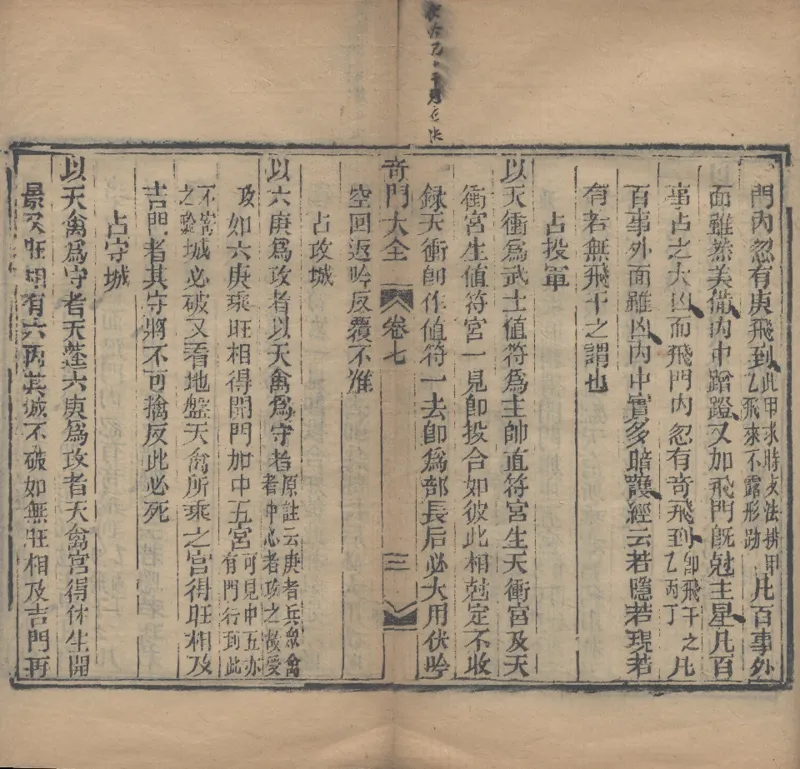 門內忽有庚飛到此甲求時支法擠甲乙飛來不露形跡凡百事外
面雖綦美備內中蹭蹬又加飛門旣尅主星凡百
事占之大凶而飛門內忽有奇飛到卽飛干之乙丙丁凡
百事外面雖凶內中實多暗護經云若隱若現若
有若無飛干之謂也
占投軍
以天衝爲武士値符爲主帥直符宮生天衝宮及天
衝宮生値符宮一見卽投合如彼此相尅定不收
録天衝卽作値符一去卽爲部長后必大用伏吟
奇門大全
卷七
三
空回返吟反覆不難
占攻城
以六庚爲攻者以天禽爲守者原註云庚者兵象禽者中心者攻之擾受
攻如六庚乘旺相得開門加中五宮可見中五亦有門行到此
不寄之驗城必破又看地盤天禽所乘之宮得旺相及
吉門者其守將不可擒反此必死
占守城
以天禽爲守者天蓬六庚爲攻者天禽宮得休生開
景又旺相有六丙其城不破如無旺相及吉門再